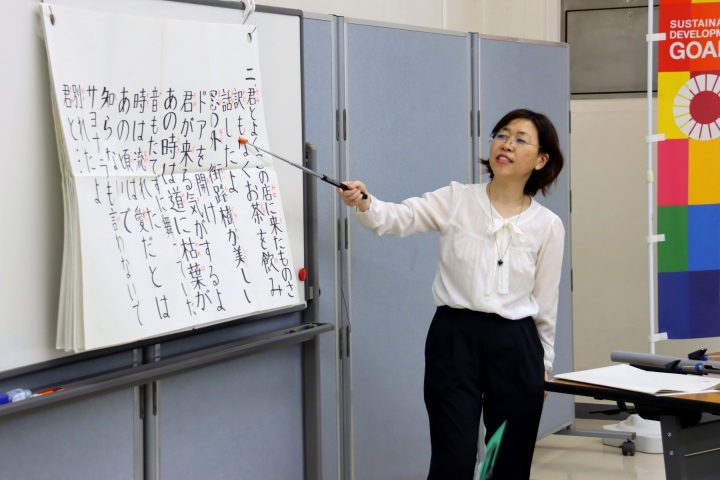 二 君とよくこの店に来たものさ
訳もなくお茶を飲み
話したよ
窓の外 街路樹が美しい
ドアを開け
君が来る気がするよ
あの時は道に枯葉が
音もたてずに舞っていた
時は流れ
あの頃は愛だとは
知らな で
サヨナラも言わないで
別れ よ
君と
SUSTAINABLE
DEVELOPMENT
GOAL